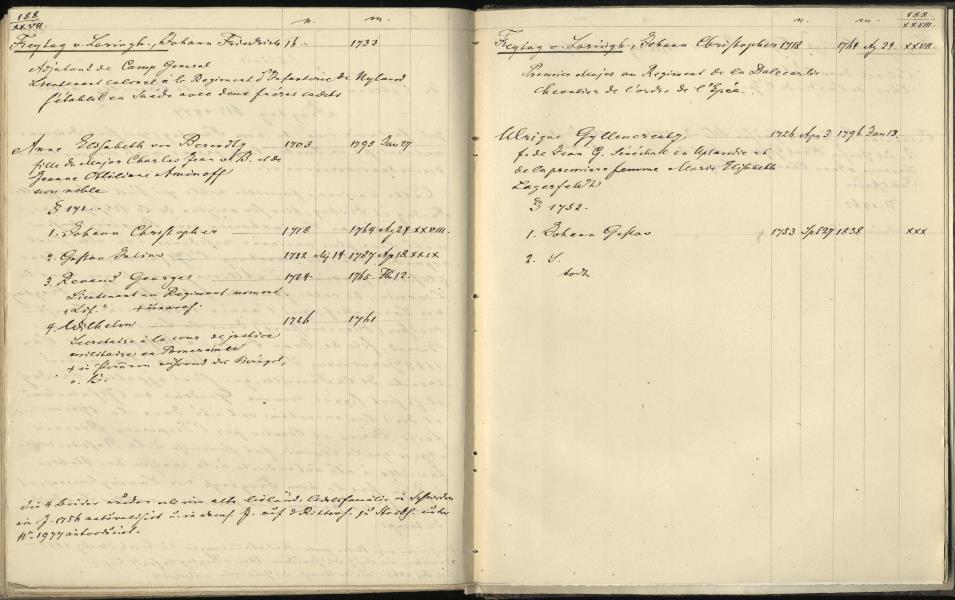 188
XXVII.
n. m.
Freytag v. Loringh., Johann Friedrich 16 - 1733
Adjutand de Camp General
Lieutenant Colonel à le Regiment d'Infanterie de Nyland
s'établit en Suède avec deux frères cadets
Anne Elisabeth von Berendtz 1703 1793 Jan 27
fille du Major Charles Jean v. B. et de
Jeanne Ottiliane Aminoff
son noble
§ 171
1. Johann Christopher 1718 1764 Ag 24 XXVIII.
2. Gustav Julius 1722 Mj 14 1787 Ag 18 XXIX
3. Renaud Georges 1724 1765 Fbr 12
Lieutenant au Regiment nommé
4. Wilhelm 1726 1761
Secretaire à la cour de justice
militaire en Pomeranie
+ in während des Krieges,
Die 4 Brüder wurden als eine alte livländ. Adelsfamilie in Schweden
im J. 1756 naturalisirt u. in dems. J. auf d. Ritterh. zu Stockh. unter
No. 1977 introducirt.
n. m.
188
XXVIII.
Freytag v. Loringh., Johann Christopher 1718 1764 Ag 24. XXVII
Premier Major au Regiment de la Dalecarlie
Chevalier de l'ordre de l'Epée.
Ulrique Gyllencreutz, 1726 Apr 3 1796 Jan 13.
f. de Jean G. Sénéchal en Uplandie et
de la premiere femme Marie Elisabeth
Lagerfeldt
§ 1752.
1. Johann Gustav 1753 Spt 27 1838 XXX
2. S.
todt